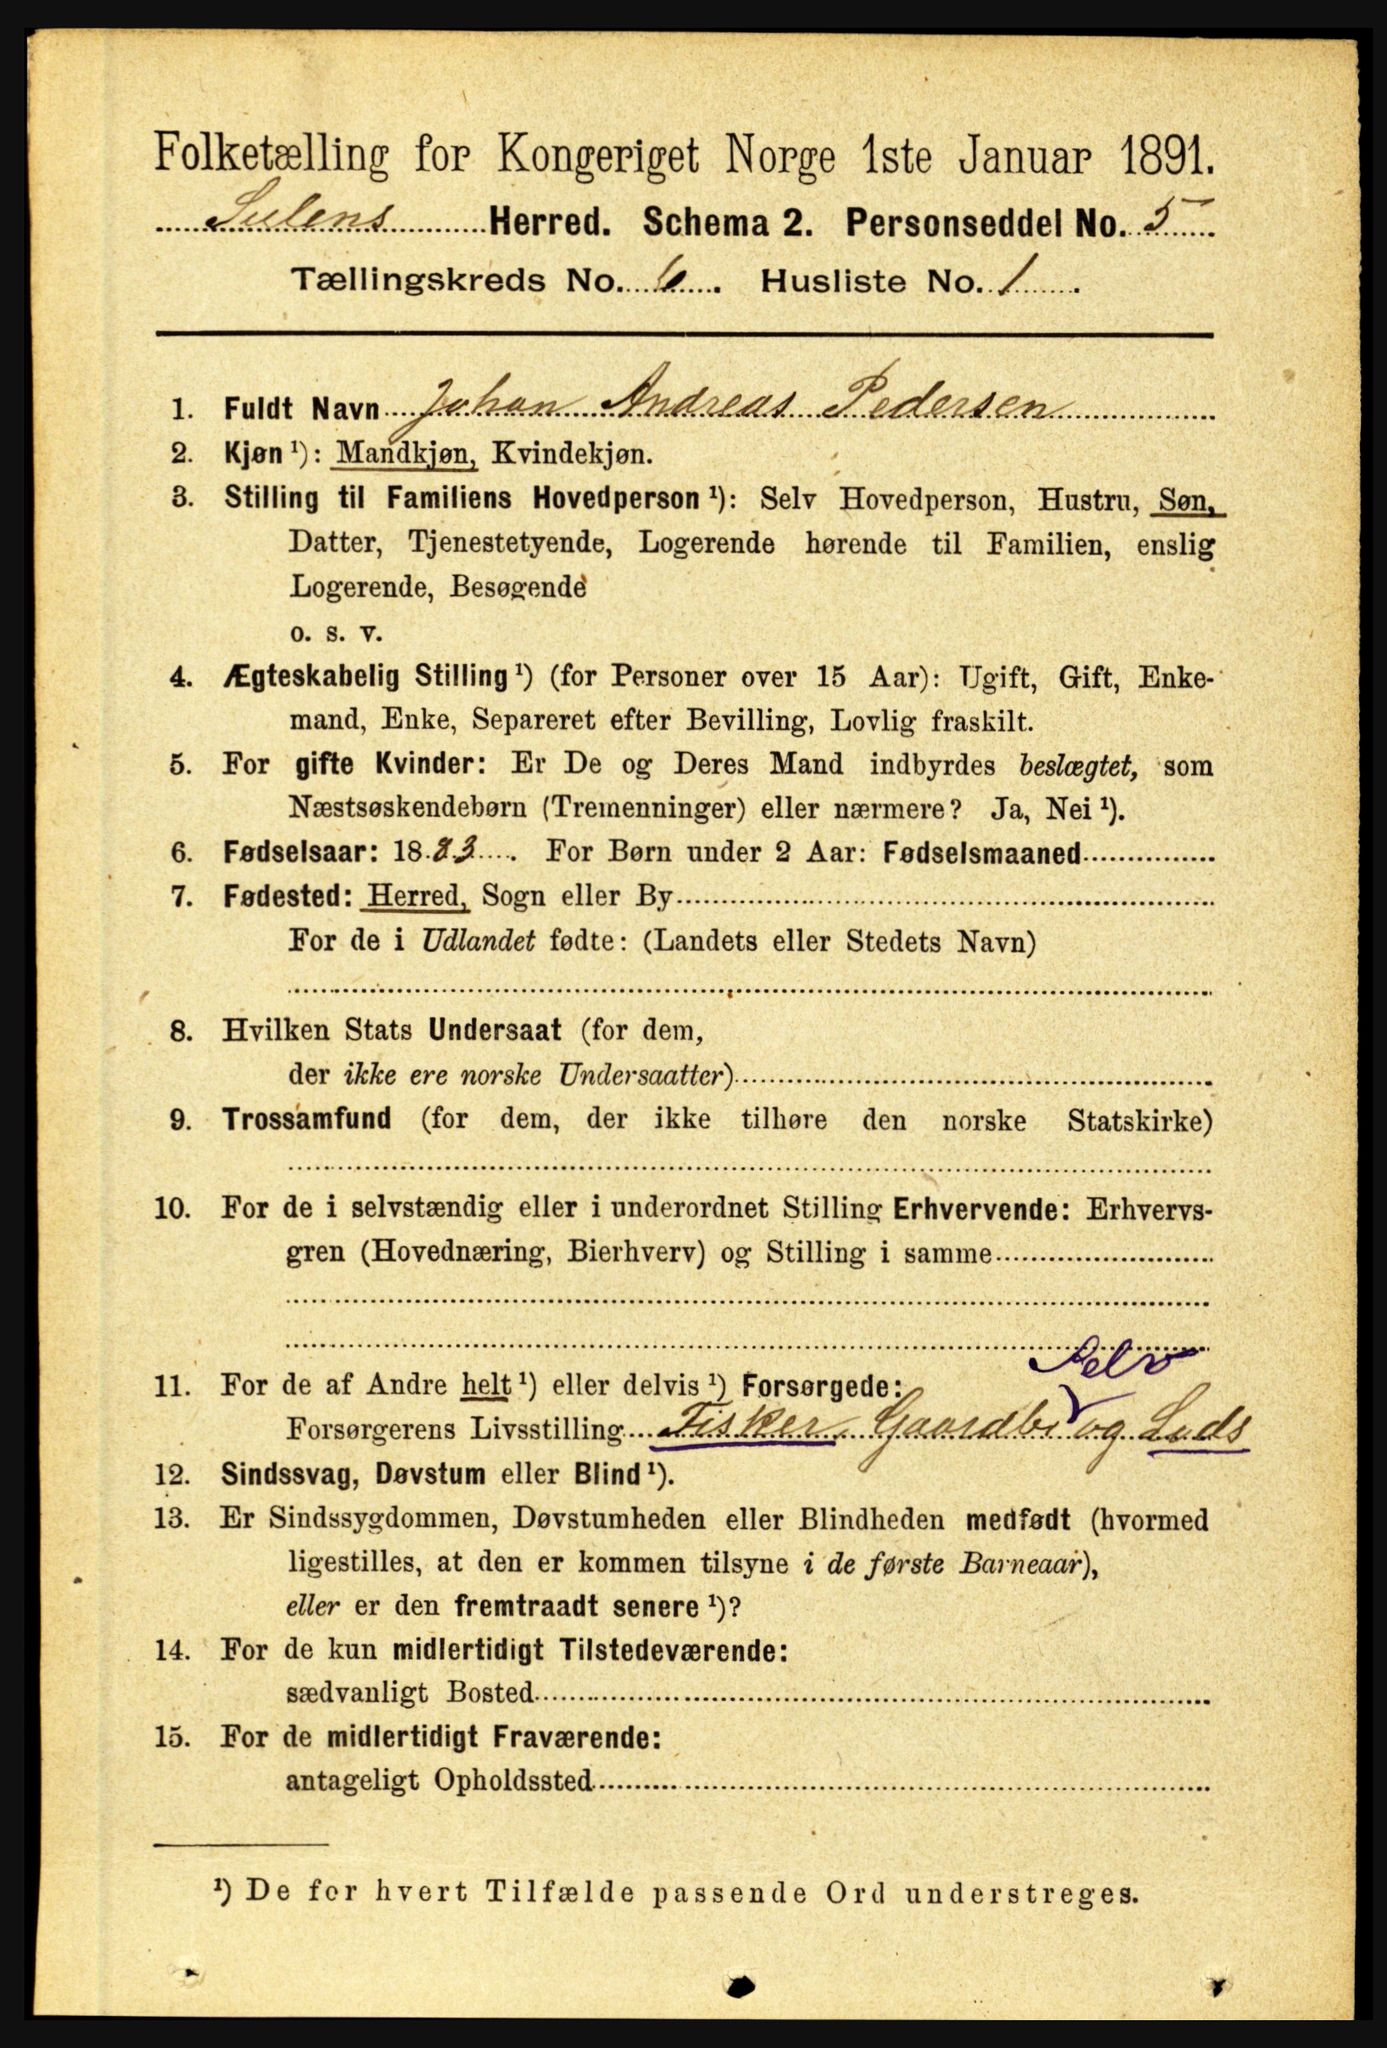 Folketælling for Kongeriget Norge 1ste Januar 1891.
Sulens Herred. Schema 2. Personseddel No. 5
Tællingskreds No. 6. Husliste No. 1.
1. Fuldt Navn Johan Andreas Pedersen
2. Kjøn ¹): Mandkjøn, Kvindekjøn.
3. Stilling til Familiens Hovedperson ¹): Selv Hovedperson, Hustru, Søn,
Datter, Tjenestetyende, Logerende hørende til Familien, enslig
Logerende, Besøgende
o. s. v.
4. Ægteskabelig Stilling ¹) (for Personer over 15 Aar): Ugift, Gift, Enke-
mand, Enke, Separeret efter Bevilling, Lovlig fraskilt.
5. For gifte Kvinder: Er De og Deres Mand indbyrdes beslægtet, som
Næstsøskendebørn (Tremenninger) eller nærmere? Ja, Nei ¹).
6. Fødselsaar: 1883. For Børn under 2 Aar: Fødselsmaaned
7. Fødested: Herred, Sogn eller By
For de i Udlandet fødte: (Landets eller Stedets Navn)
8. Hvilken Stats Undersaat (for dem,
der ikke ere norske Undersaatter)
9. Trossamfund (for dem, der ikke tilhøre den norske Statskirke)
10. For de i selvstændig eller i underordnet Stilling Erhvervende: Erhvervs-
gren (Hovednæring, Bierhverv) og Stilling i samme
Selv
11. For de af Andre helt ¹) eller delvis ¹) Forsørgede:
Forsørgerens Livsstilling Fisker, Gaardbr og Lods
12. Sindssvag, Døvstum eller Blind ¹).
13. Er Sindssygdommen, Døvstumheden eller Blindheden medfødt (hvormed
ligestilles, at den er kommen tilsyne i de første Barneaar),
eller er den fremtraadt senere ¹)?
14. For de kun midlertidigt Tilstedeværende:
sædvanligt Bosted
15. For de midlertidigt Fraværende:
antageligt Opholdssted
¹) De for hvert Tilfælde passende Ord understreges.